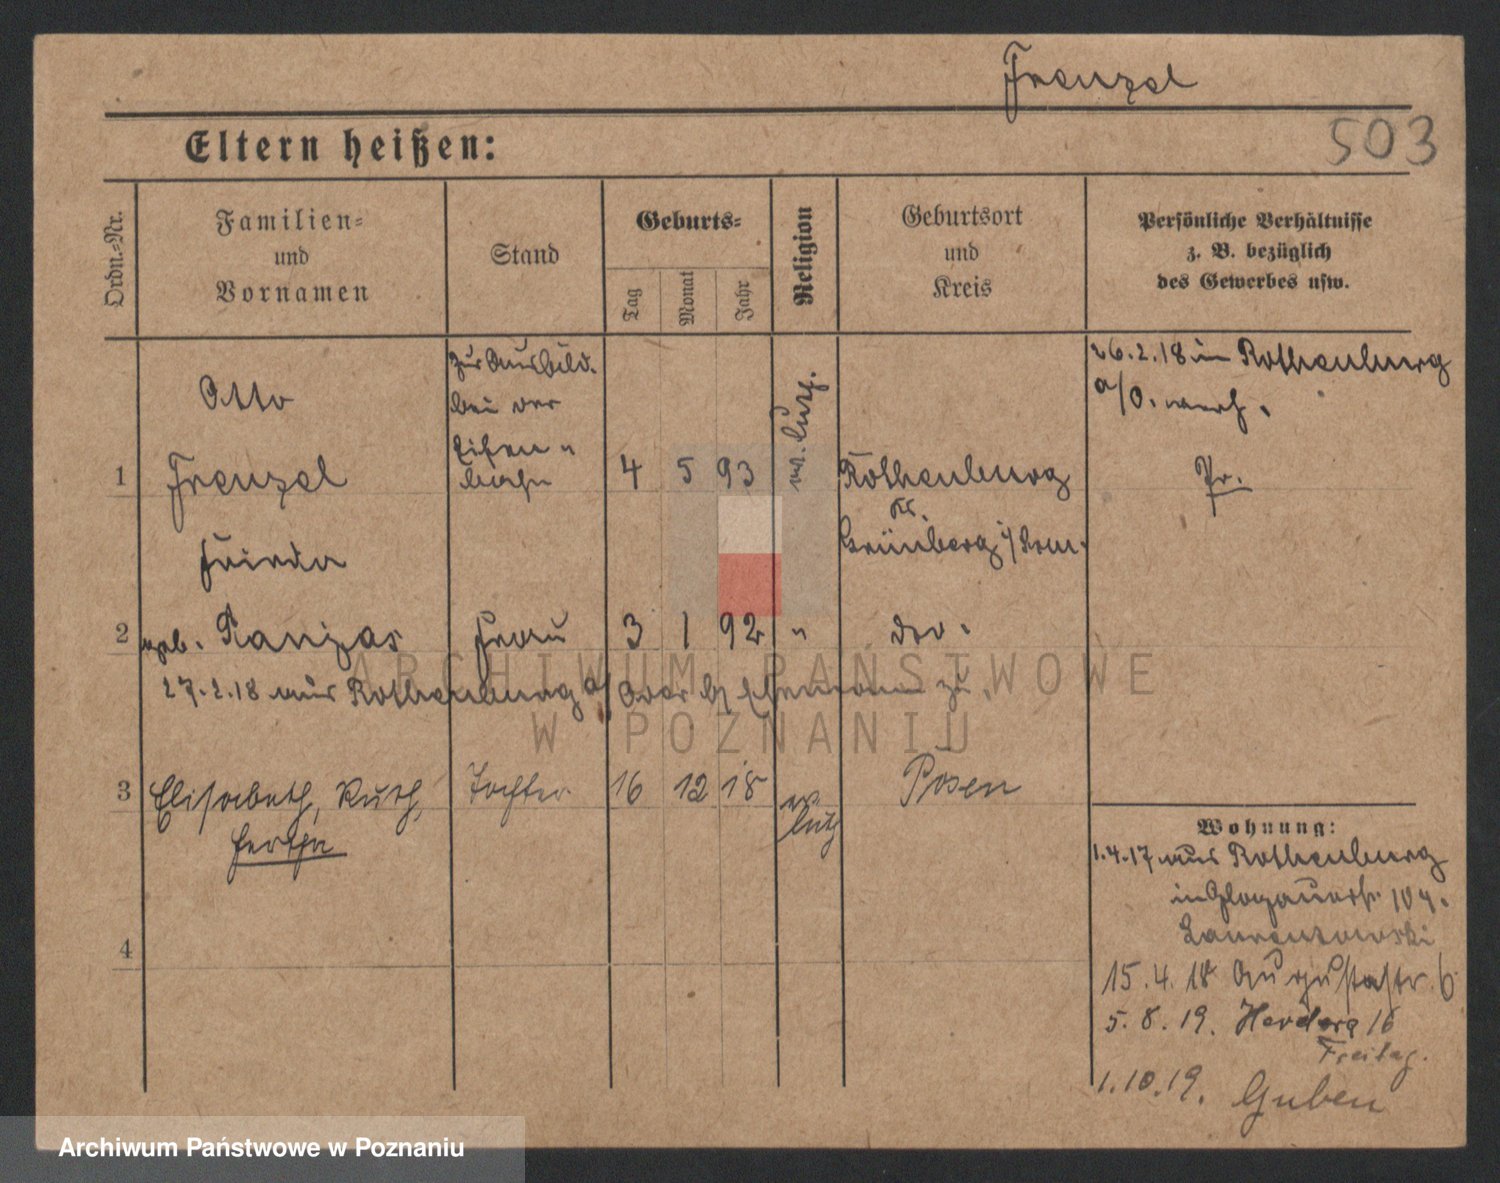 Frenzel
503
Eltern heißen:
Ordn.-Nr.
Familien-
und
Vornamen
Stand
Geburts-
Tag
Monat
Jahr
Religion
Geburtsort
und
Kreis
Persönliche Verhältnisse
z. B. bezüglich
des Gewerbes usw.
1
Otto
Frenzel
zur Ausbild.
bei der
Eisen-
bahn
4 5 93
ev. luth.
Rothenburg
Kr.
Grünberg i/
26.2.18 in Rothenburg
a/O. verh.
Pr.
2
Frieda
geb.
Frau
3 1 92
"
dto.
27.2.18 aus Rothenburg a/Oder bz Ehemann zu.
3
Elisabeth, Ruth,
Hertha
Tochter
16 12 18
ev.
luth
Posen
4
Wohnung:
1.4.17 aus Rothenburg
in Glogauerstr. 104.
15.4.18 Augustastr. 6
5.8.19. Herderg 16
Freitag.
1.10.19. Guben
ARCHIWUM PAŃSTWOWE
W POZNANIU
Archiwum Państwowe w Poznaniu